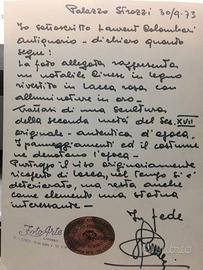 Palazzo Strozzi 30/9.73
Io sottoscritto Laurent Colombari
antiquario - dichiaro quanto
segue:
La foto allegata rappresenta
un notabile Cinese in legno
rivestito in lacca rossa con
alluminature in oro -
trattasi di una scultura
della seconda metà del Sec. XVII
originale - autentica d'epoca.
I panneggiamenti ed il costume
ne denotano l'epoca -
Purtroppo il viso originariamente
ricoperto di lacca, nel tempo si è
deteriorato, ma resta anche
come elemento una statua
interessante -
In fede
FotoArte